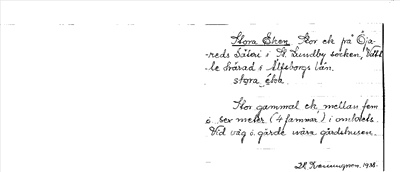 Stora Eken. Stor ek på Öja-
reds Säteri i St. Lundby socken, Vätt-
le härad i Älfsborgs län.
stora eka.
Stor gammal ek, mellan fem
o. sex meter (4 famnar) i omkrets.
Vid väg o. gärde nära gårdshusen.
1938.